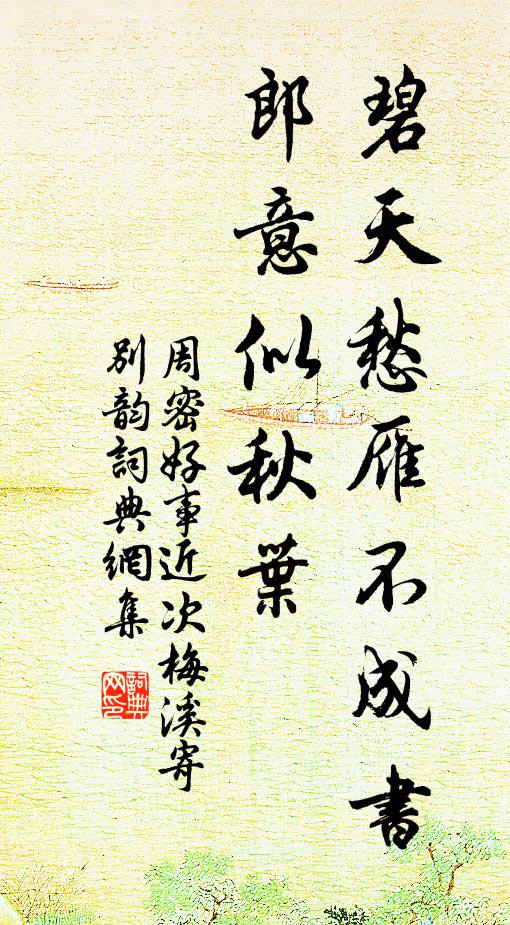 碧天愁雁不成書
郎意似秋葉
周密好事近次梅溪寄
別韵詞典網集
詞典
网印